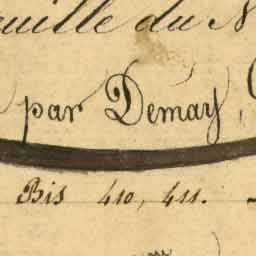 uille du N
par Demay,
Bis 410, 411.